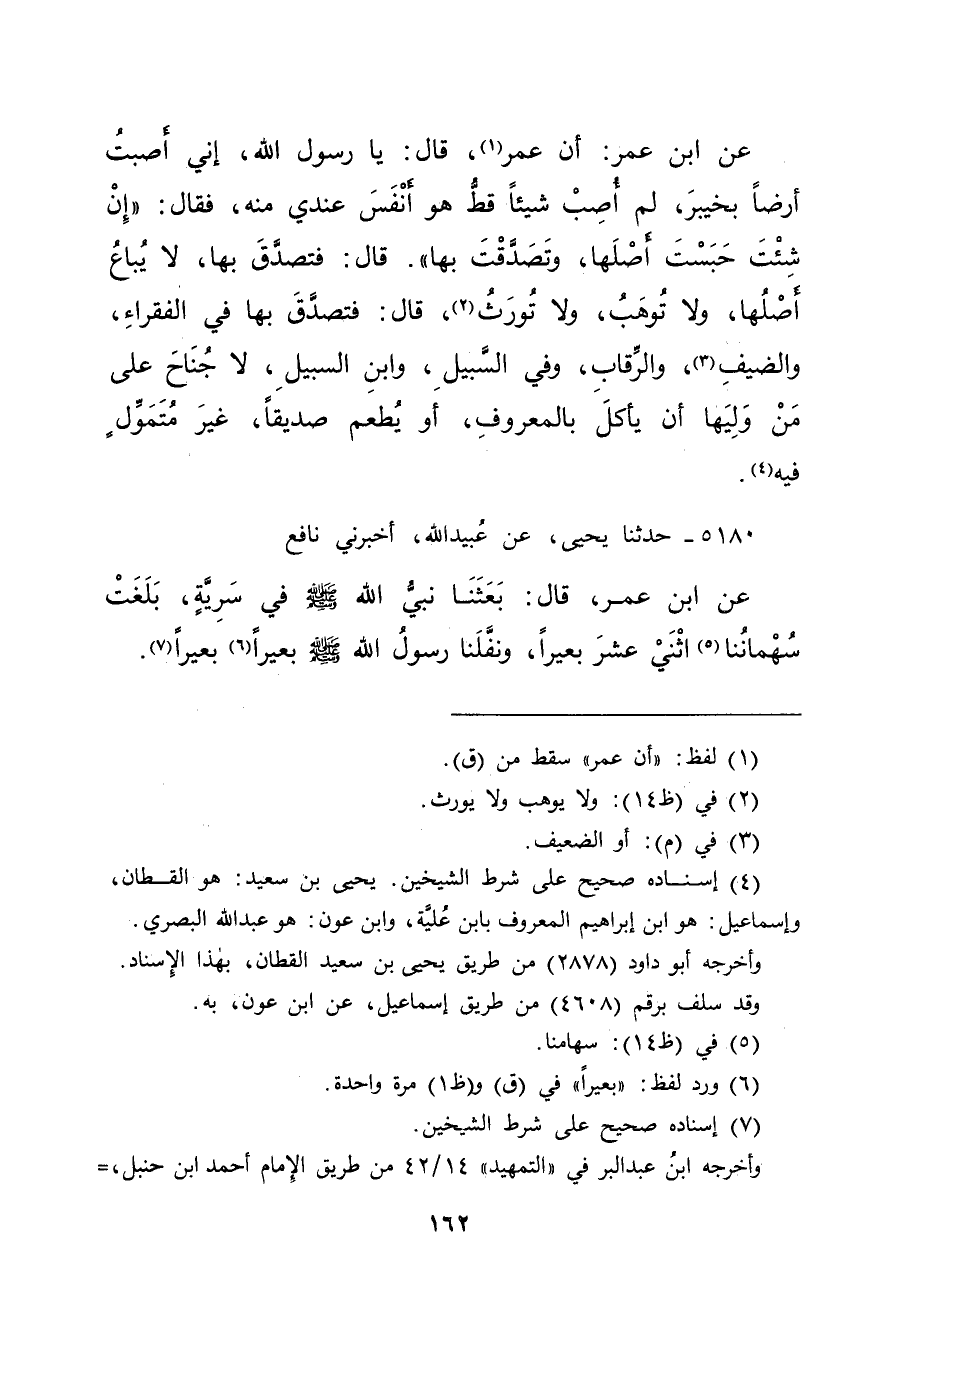 عن ابن عمر: أن عمر(١)، قال: يا رسول الله، إني أَصبتُ
أرضاً بخيبرَ، لم أُصِبْ شيئاً قطُّ هو أَنْفَسَ عندي منه، فقال: «إِنْ
شِئْتَ حَبَسْتَ أَصْلَها، وتَصَدَّقْتَ بها». قال: فتصدَّقَ بها، لا يُباعُ
أَصْلُها، ولا تُوهَبُ، ولا تُورَثُ(٢)، قال: فتصدَّقَ بها في الفقراءِ،
والضيفِ(٣)، والرِّقابِ، وفي السَّبيلِ، وابنِ السبيلِ، لا جُنَاحَ على
مَنْ وَلِيَها أن يأكلَ بالمعروفِ، أو يُطعم صديقاً، غيرَ مُتَمَوِّلٍ
فيه(٤).
٥١٨٠ ـ حدثنا يحيى، عن عُبيدالله، أخبرني نافع
عن ابن عمـر، قال: بَعَثَنَـا نبيُّ الله ﷺ في سَرِيَّةٍ، بَلَغَتْ
سُهْمانُنا(٥) اثْنَيْ عشرَ بعيراً، ونفَّلَنا رسولُ الله ﷺ بعيراً(٦) بعيراً(٧).
(١) لفظ: «أن عمر» سقط من (ق).
(٢) في (ظ١٤): ولا يوهب ولا يورث.
(٣) في (م): أو الضعيف.
(٤) إسنـاده صحيح على شرط الشيخين. يحيى بن سعيد: هو القـطان،
وإسماعيل: هو ابن إبراهيم المعروف بابن عُليَّة، وابن عون: هو عبدالله البصري.
وأخرجه أبو داود (٢٨٧٨) من طريق يحيى بن سعيد القطان، بهٰذا الإِسناد.
وقد سلف برقم (٤٦٠٨) من طريق إسماعيل، عن ابن عون، به.
(٥) في (ظ١٤): سهامنا.
(٦) ورد لفظ: «بعيراً» في (ق) و(ظ١) مرة واحدة.
(٧) إسناده صحيح على شرط الشيخين.
وأخرجه ابنُ عبدالبر في «التمهيد» ٤٢/١٤ من طريق الإِمام أحمد ابن حنبل،=
١٦٢